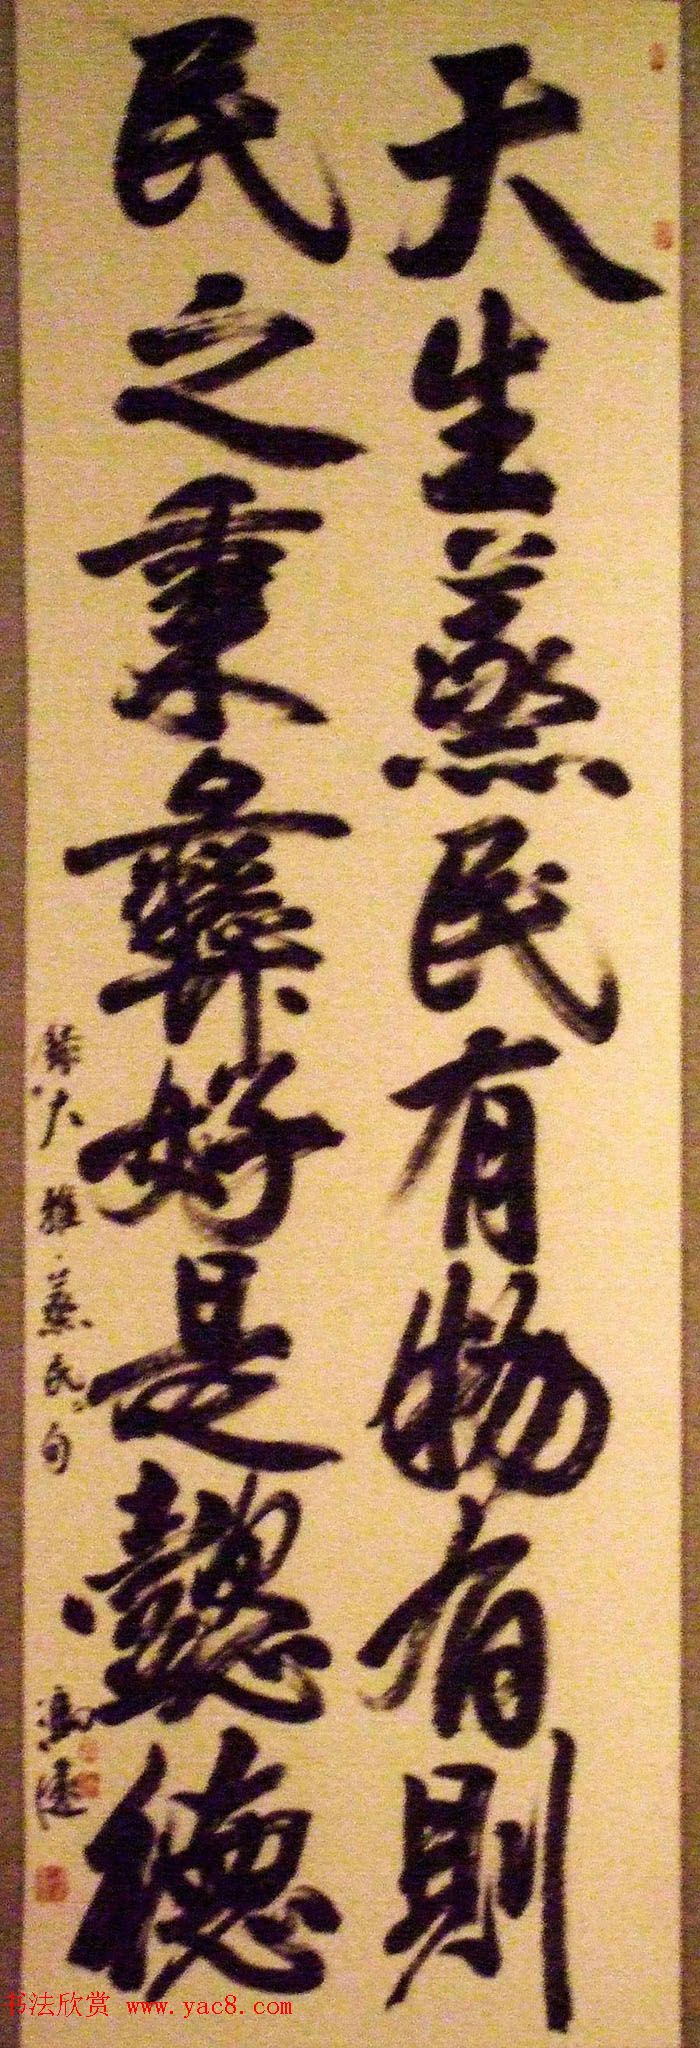 天生蒸民有物有則
民之秉彝好是懿德
錄大雅蒸民句
書法欣赏 www.yac8.com